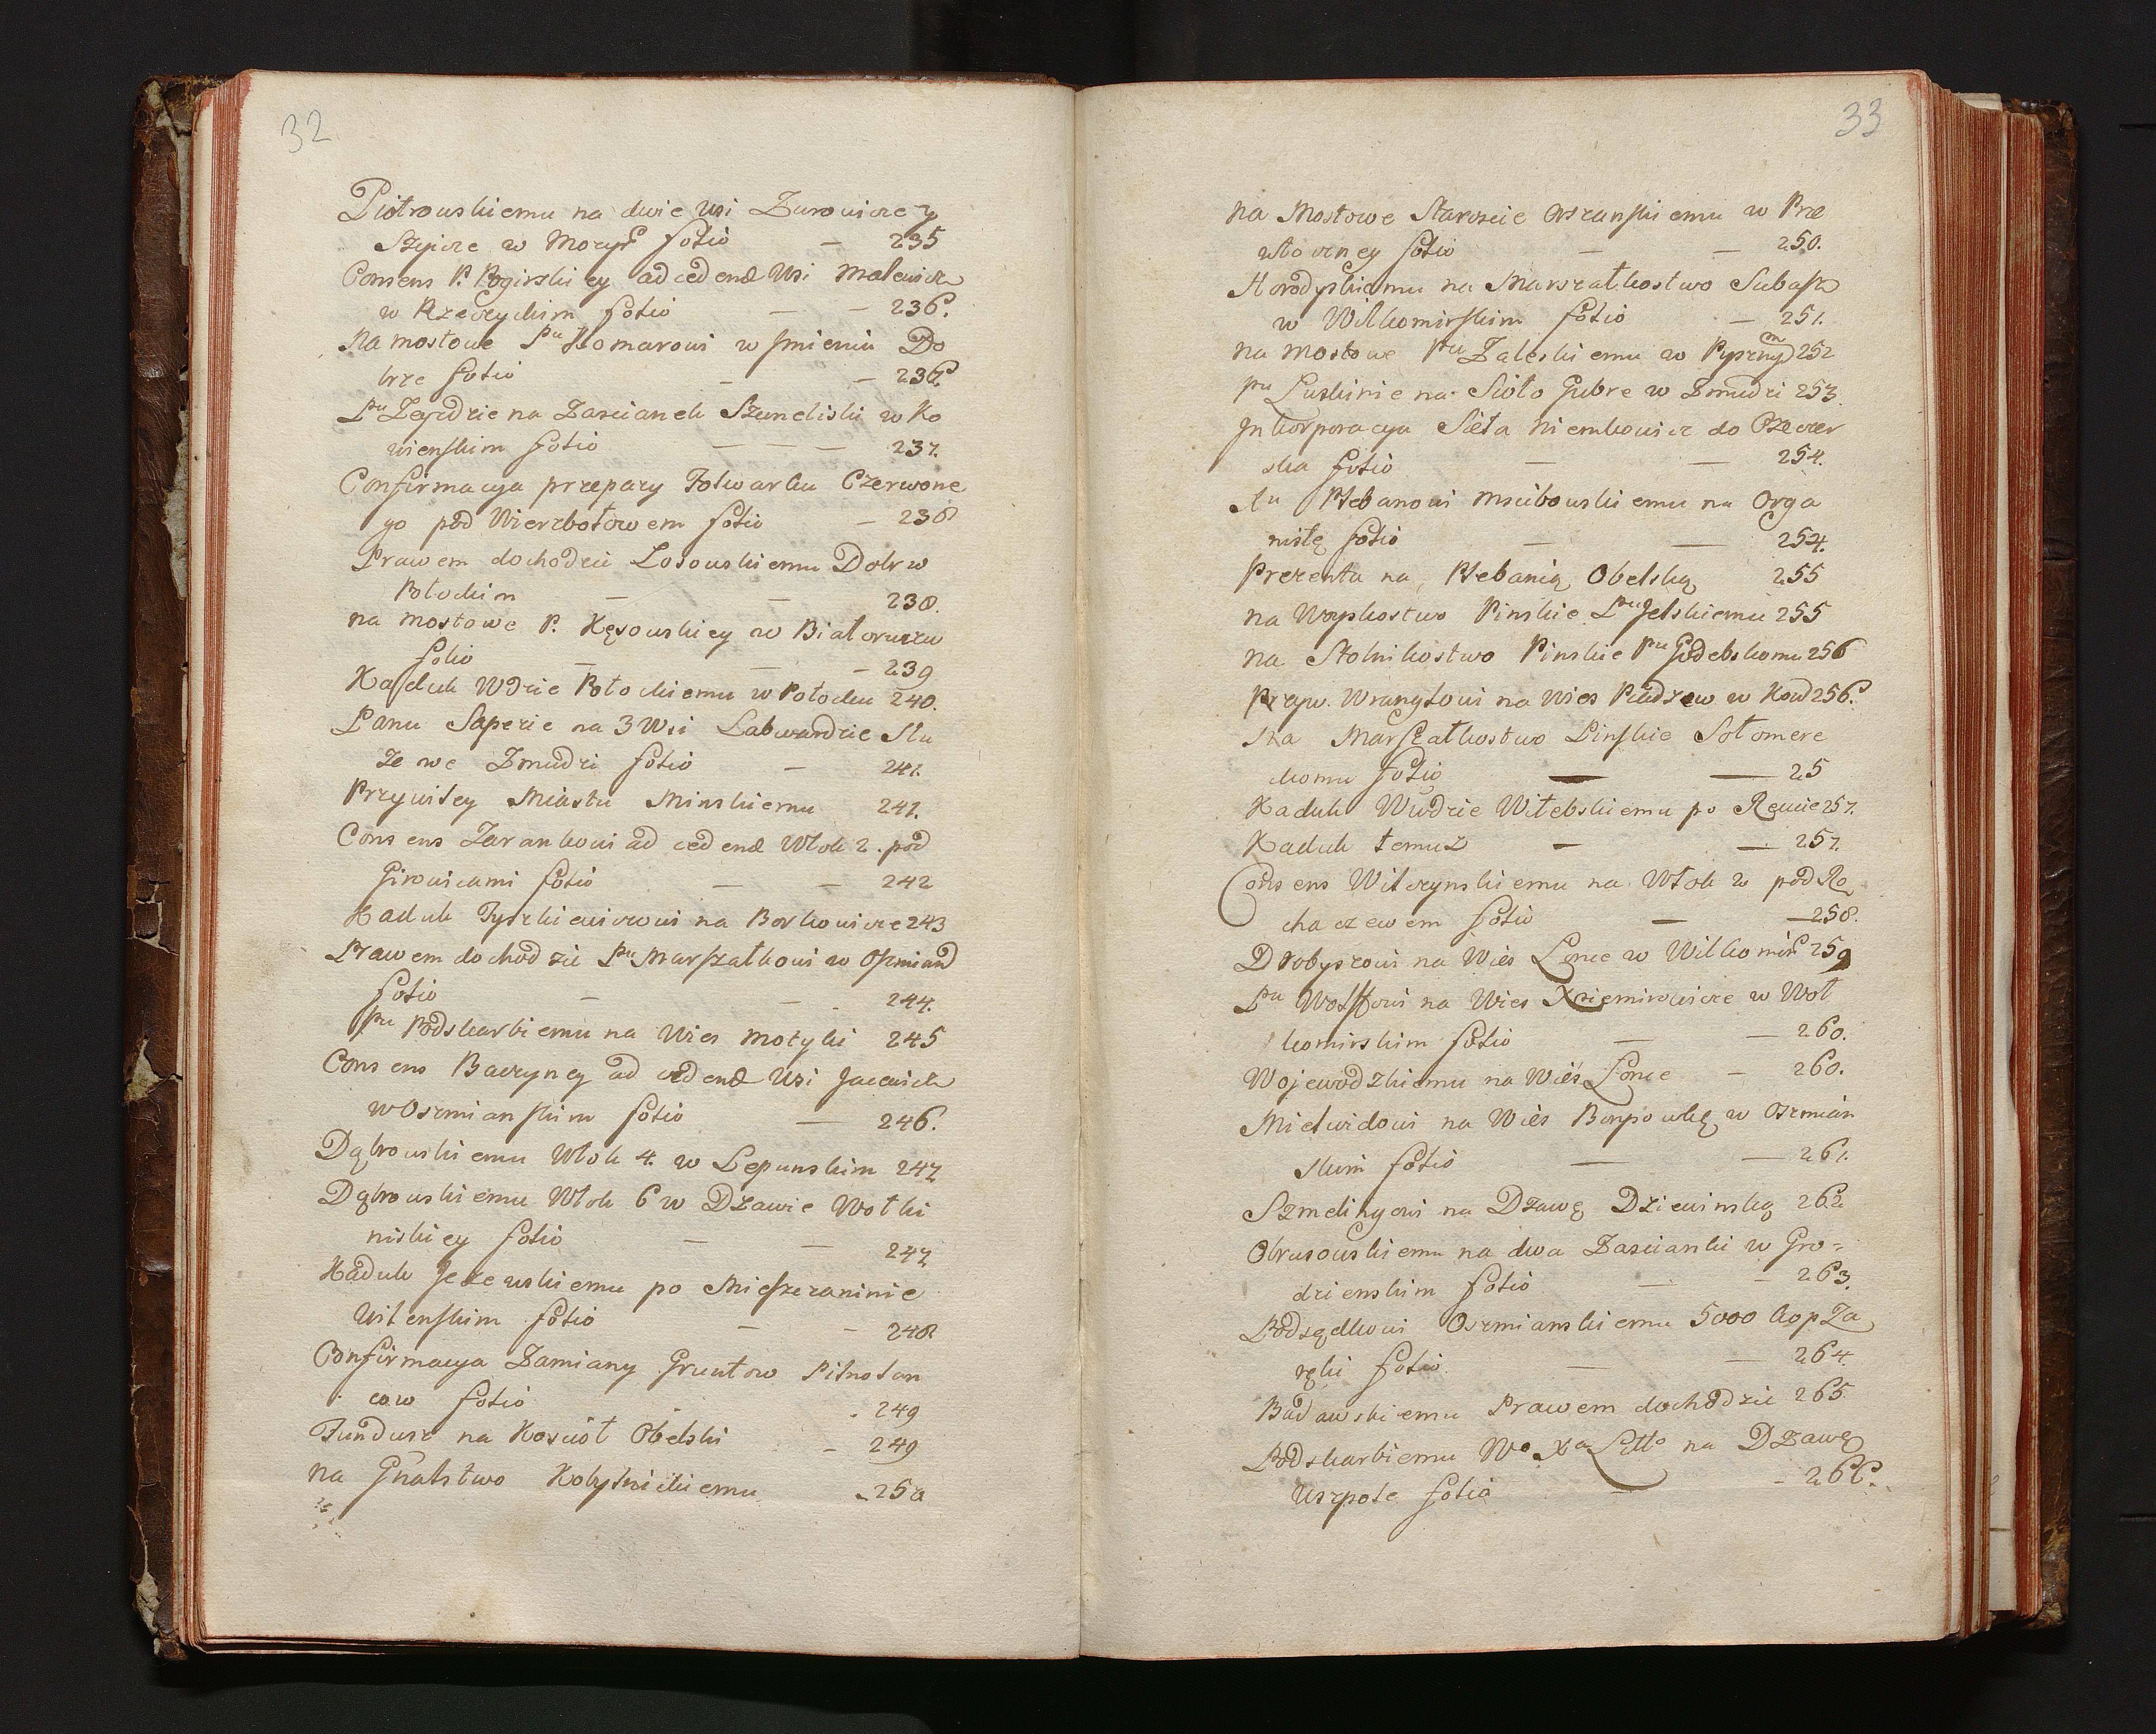 32
Piotrowskiemu na dwie Wsi Zurowicze y
Szyicze w Mozyr folio — 235
Consens P. Pogirskiey ad cedend Wsi Malewicz
w Rzeczyckim folio — — 236.
Na mostowe Pu Komarowi w Imieniu Do
brze folio — — 236.
Pu Zayzdzie na Zascianek Szumeliski w Ko
wienskim folio — — — 237.
Confirmacya przepazy Folwarku Czerwone
go pod Wierzbołowem folio — 238
Prawem dochodzic Losowskiemu Dobr w
Połockim — — 238.
na mostowe P. Kęsowskiey w Białorusku
folio — — — 239
Kaduk Wdzie Połockiemu w Połocku 240.
Panu Sapezie na 3 Wsi Labwardzie Stu
ze we Zmudzi folio — 241.
Przywiley Miastu Minskiemu 241.
Consens Zarankowi ad cedend Włok 2. pod
Girowicami folio — — 242
Kaduk Tyszkiewiczowi na Borkowicze 243
Prawem dochodzic Pu Marszałkowi w Oszmian
folio — — 244.
Pu Podskarbiemu na Wies Motyki 245
Consens Baczyney ad cedend Wsi Jacewicz
w Oszmianskim folio — 246.
Dąbrowskiemu Włok 4. w Lepunskim 247
Dąbrowskiemu Włok 6 w Dzawie Wołki
niskiey folio — — 247
Kaduk Jezewskiemu po Mieszczaninie
Wilenskim folio — — 248
Confirmacya Zamiany Gruntow Pilnotan
cow folio - 249
Fundusz na Koscioł Obelski — 249
na Gnalstwo Kobylnickiemu - 250
33
na Mostowe Staroscie Orszanskiemu w Prze
włoczney folio — — 250.
Horodyskiemu na Marszałkostwo Subast
w Wilkomirskim folio — 251.
na mostowe Pu Zaleskiemu w Pyszny 252
Pu Luskinie na Sioło Gubre w Zmudzi 253.
Inkorporacya Sieła Niemkowicz do Przeczer
ska folio — — 254.
Xu Plebanowi Mscibowskiemu na Orga
nistę folio — — 254.
Prezenta na Plebanią Obelską 255
na Woyskostwo Pinskie Pu Jelskiemu 255
na Stolnikostwo Pinskie Pu Godebskomu 256
Przyw. Wrangłowi na Wies Pudzew w Kow 256.
Na Marszałkostwo Pinskie Sołomere
ckomu folio — — 25
Kaduk Wwdzie Witebskiemu po Ręucie 257.
Kaduk temuz — — 257.
Consens Wilczynskiemu na Włok 2 pod Ro
chaczewem folio — — 258.
Drobyszowi na Wies Lonce w Wilkomir 259
Pu Wolffowi na Wies Xziemirowicze w Woł
komirskim folio — — 260.
Wojewodzkiemu na Wies Lonce — 260.
Mielwidowi na Wies Borpowkę w Oszmian
skim folio — — 261.
Szmelingowi na Dzawę Dziewinską 262
Obrusowskiemu na dwa Zascianki w Gro-
dzienskim folio — — 263.
Podsędkowi Oszmianskiemu 5000 kop Za
ręki folio — — 264.
Badawskiemu Prawem dochodzic 265
Podskarbiemu Wo Xa Litto na Dzawę
Uszpole folio — - 266.